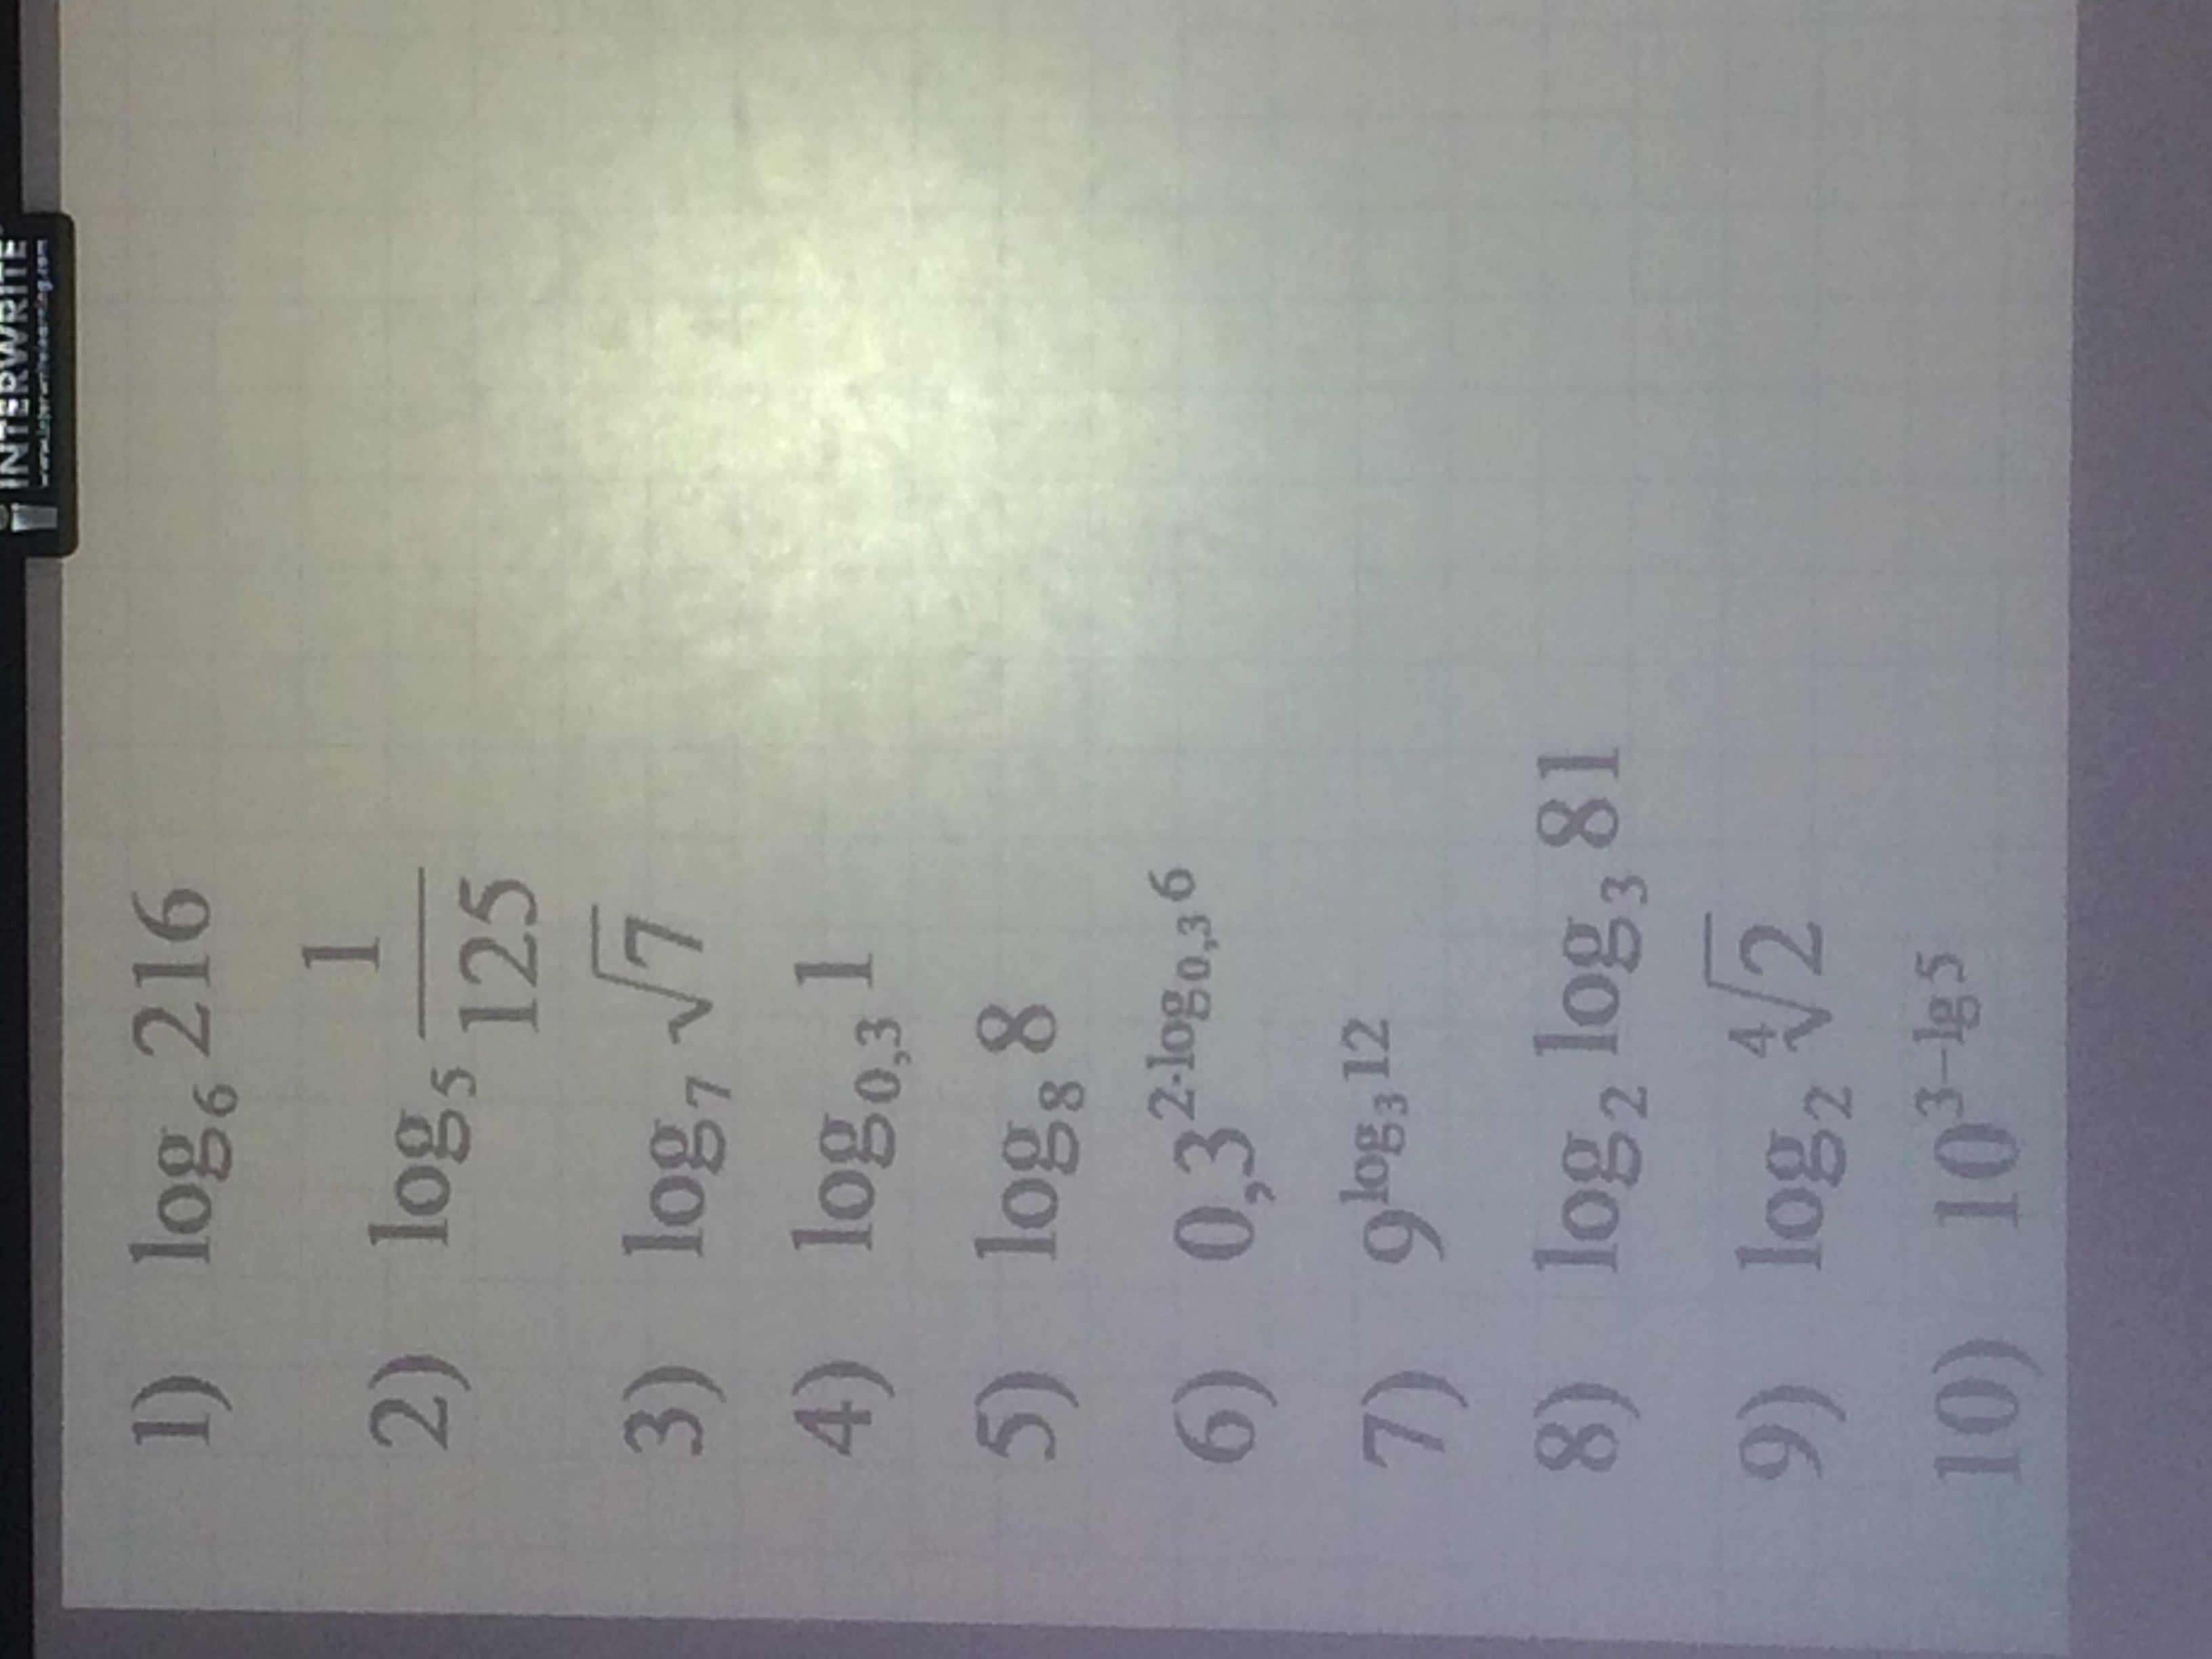 INTERWRITE
1) log₆ 216
2) log₅ 1/125
3) log₇ √7
4) log₀,₃ 1
5) log₈ 8
6) 0,3^(2·log₀,₃ 6)
7) 9^(log₃ 12)
8) log₂ log₃ 81
9) log₂ ⁴√2
10) 10^(3−lg 5)